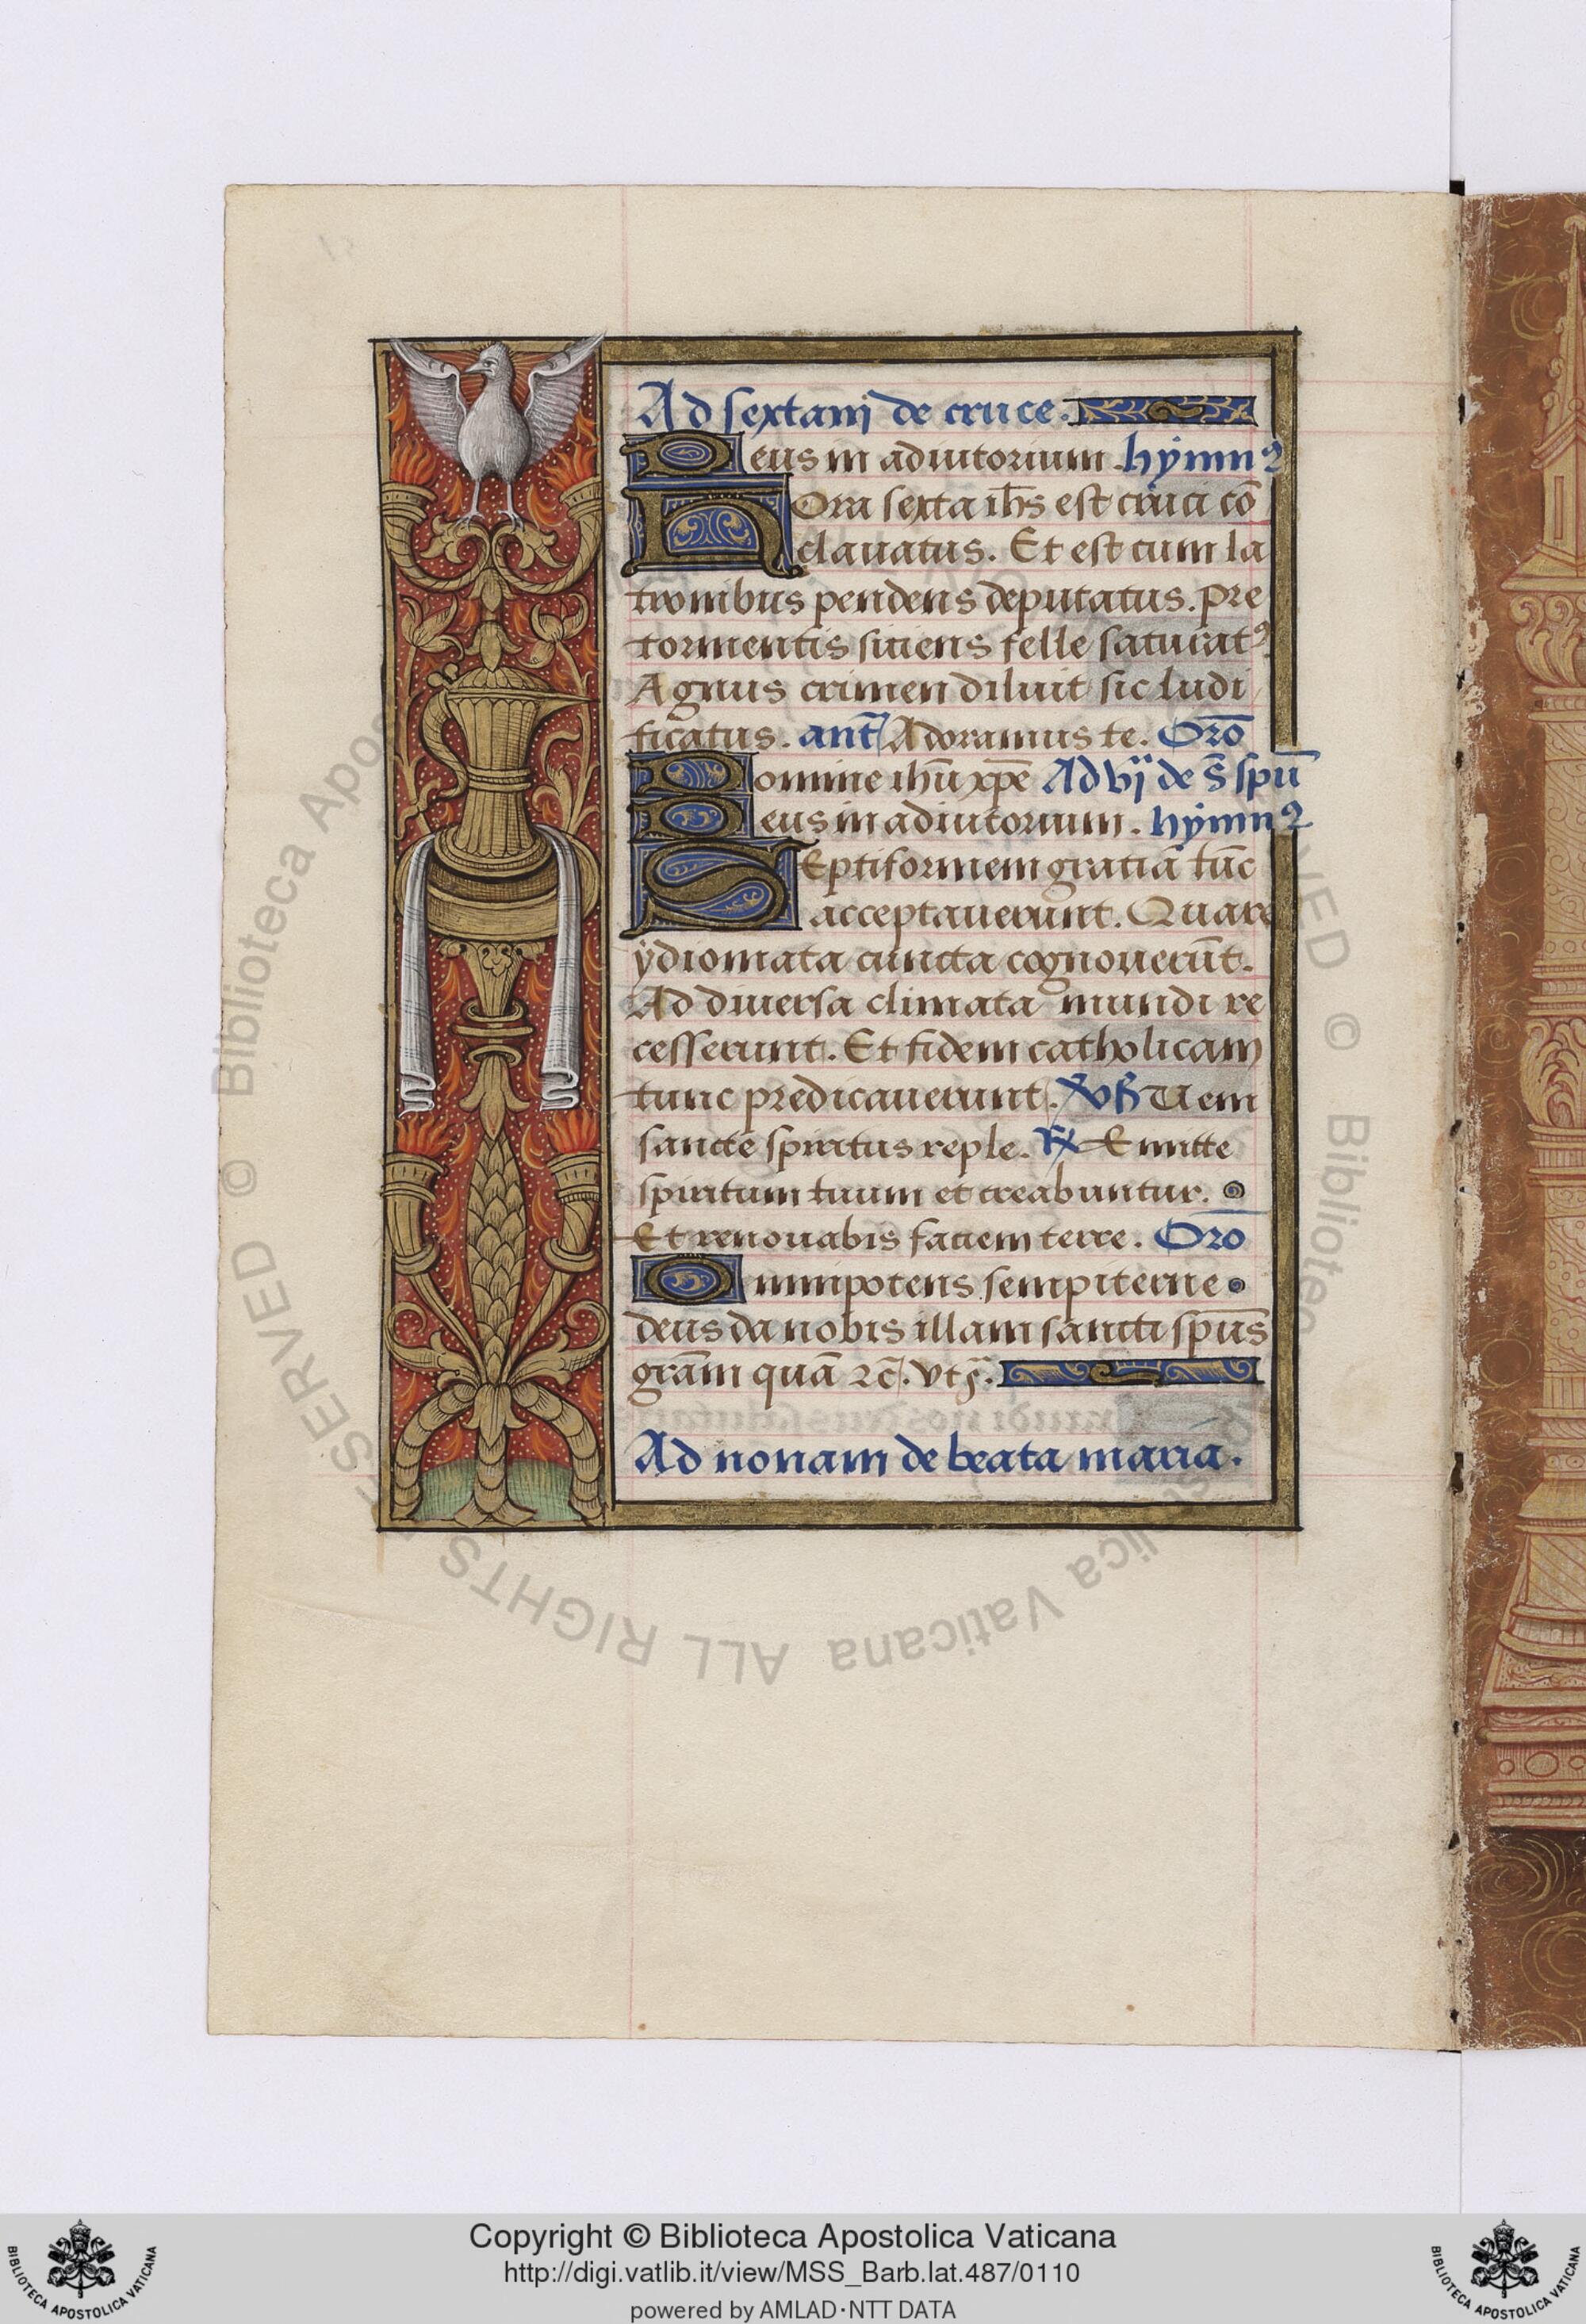 Ad sextam de cruce.
Deus in adiutorium. hymnꝰ
Hora sexta ihs̄ est cruci cō
clauatus. Et est cum la
tronibus pendens deputatus. Pre
tormentis sitiens felle saturatꝰ.
Agnus crimen diluit sic ludi
ficatus. ant̄ Adoramus te. Orō
Domine ihū xp̄e Ad vj de s̄ spū
Deus in adiutorium. hymnꝰ
Septiformem gratiā tūc
acceptauerunt. Quare
ydiomata cuncta cognouerūt.
Ad diuersa climata mundi re
cesserunt. Et fidem catholicam
tunc predicauerunt. Ueni
sancte spiritus reple. ℟ Emitte
spiritum tuum et creabuntur.
Et renouabis faciem terre. Orō
Omnipotens sempiterne
deus da nobis illam sancti spūs
grām quā ⁊c̄. vt ſ.
Ad nonam de beata maria.
© Biblioteca Apostolica Vaticana ALL RIGHTS RESERVED © Biblioteca
Copyright © Biblioteca Apostolica Vaticana
http://digi.vatlib.it/view/MSS_Barb.lat.487/0110
powered by AMLAD·NTT DATA
BIBLIOTECA APOSTOLICA VATICANA
BIBLIOTECA APOSTOLICA VATICANA